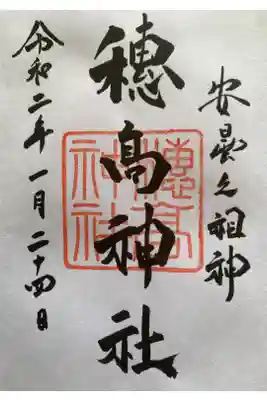 安曇之祖神
穂髙神社
穂髙神社
令和二年一月二十四日